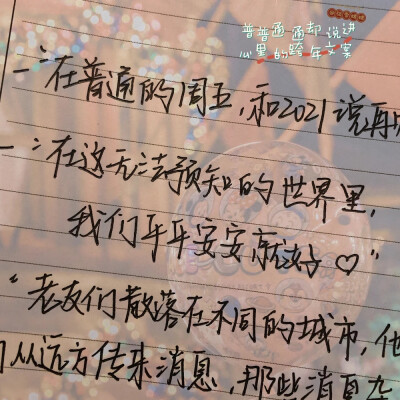 普普通通却说进
心里的跨年文案
一:"在普通的周五,和2021说再见
一:"在这无法预知的世界里,
我们平平安安就好♡"
"老友们散落在不同的城市,他
们从远方传来消息,那些消息杂